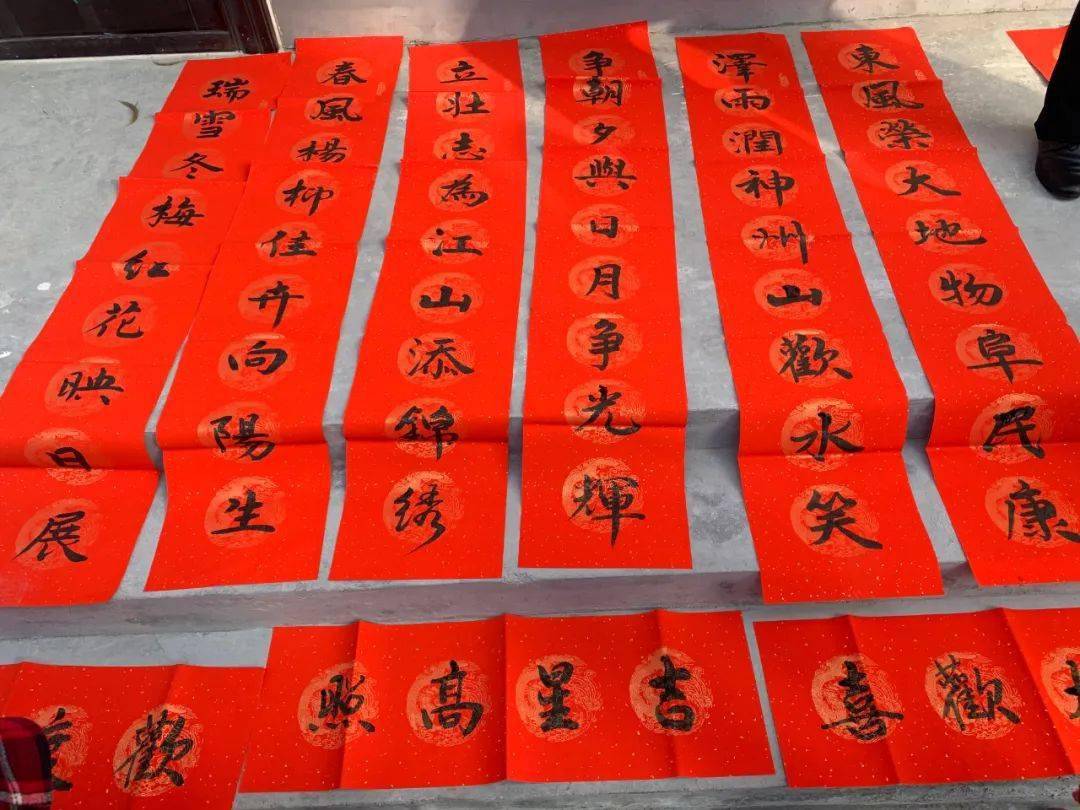 東風榮大地物阜民康
澤雨潤神州山歡水笑
争朝夕與日月争光輝
立壮志為江山添錦绣
春風楊柳佳卉向陽生
瑞雪冬梅红花映日展
歡喜
吉星高照
歡